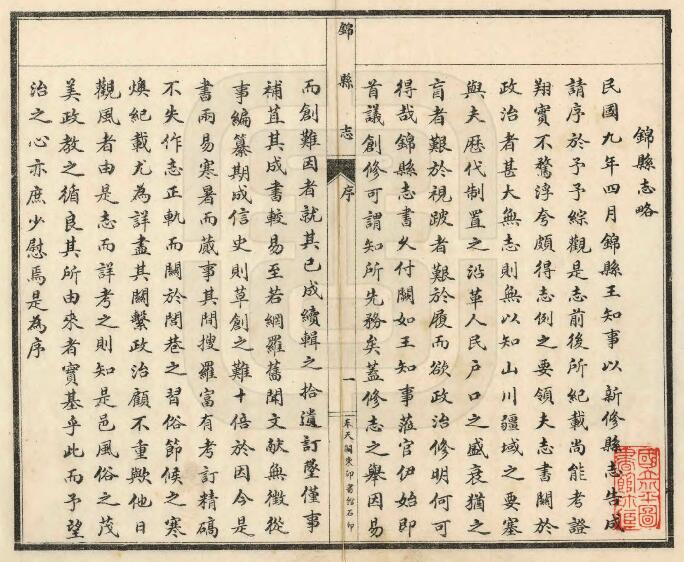 錦縣志略
民國九年四月錦縣王知事以新修縣志告成
請序於予予綜觀是志前後所紀載尚能考證
翔實不騖浮夸頗得志例之要領夫志書關於
政治者甚大無志則無以知山川疆域之要塞
與夫歷代制置之沿革人民戶口之盛衰猶之
盲者艱於視跛者艱於履而欲政治修明何可
得哉錦縣志書久付闕如王知事蒞官伊始即
首議創修可謂知所先務矣蓋修志之舉因易
錦縣志 序
一
奉天關東印書館石印
而創難因者就其已成續輯之拾遺訂墜僅事
補苴其成書較易至若網羅舊聞文獻無徵從
事編纂期成信史則草創之難十倍於因今是
書兩易寒暑而蕆事其間搜羅富有考訂精碻
不失作志正軌而關於閭巷之習俗節候之寒
燠紀載尤為詳盡其關繫政治顧不重歟他日
觀風者由是志而詳考之則知是邑風俗之茂
美政教之循良其所由來者實基乎此而予望
治之心亦庶少慰焉是為序
國立北平圖
書館收藏